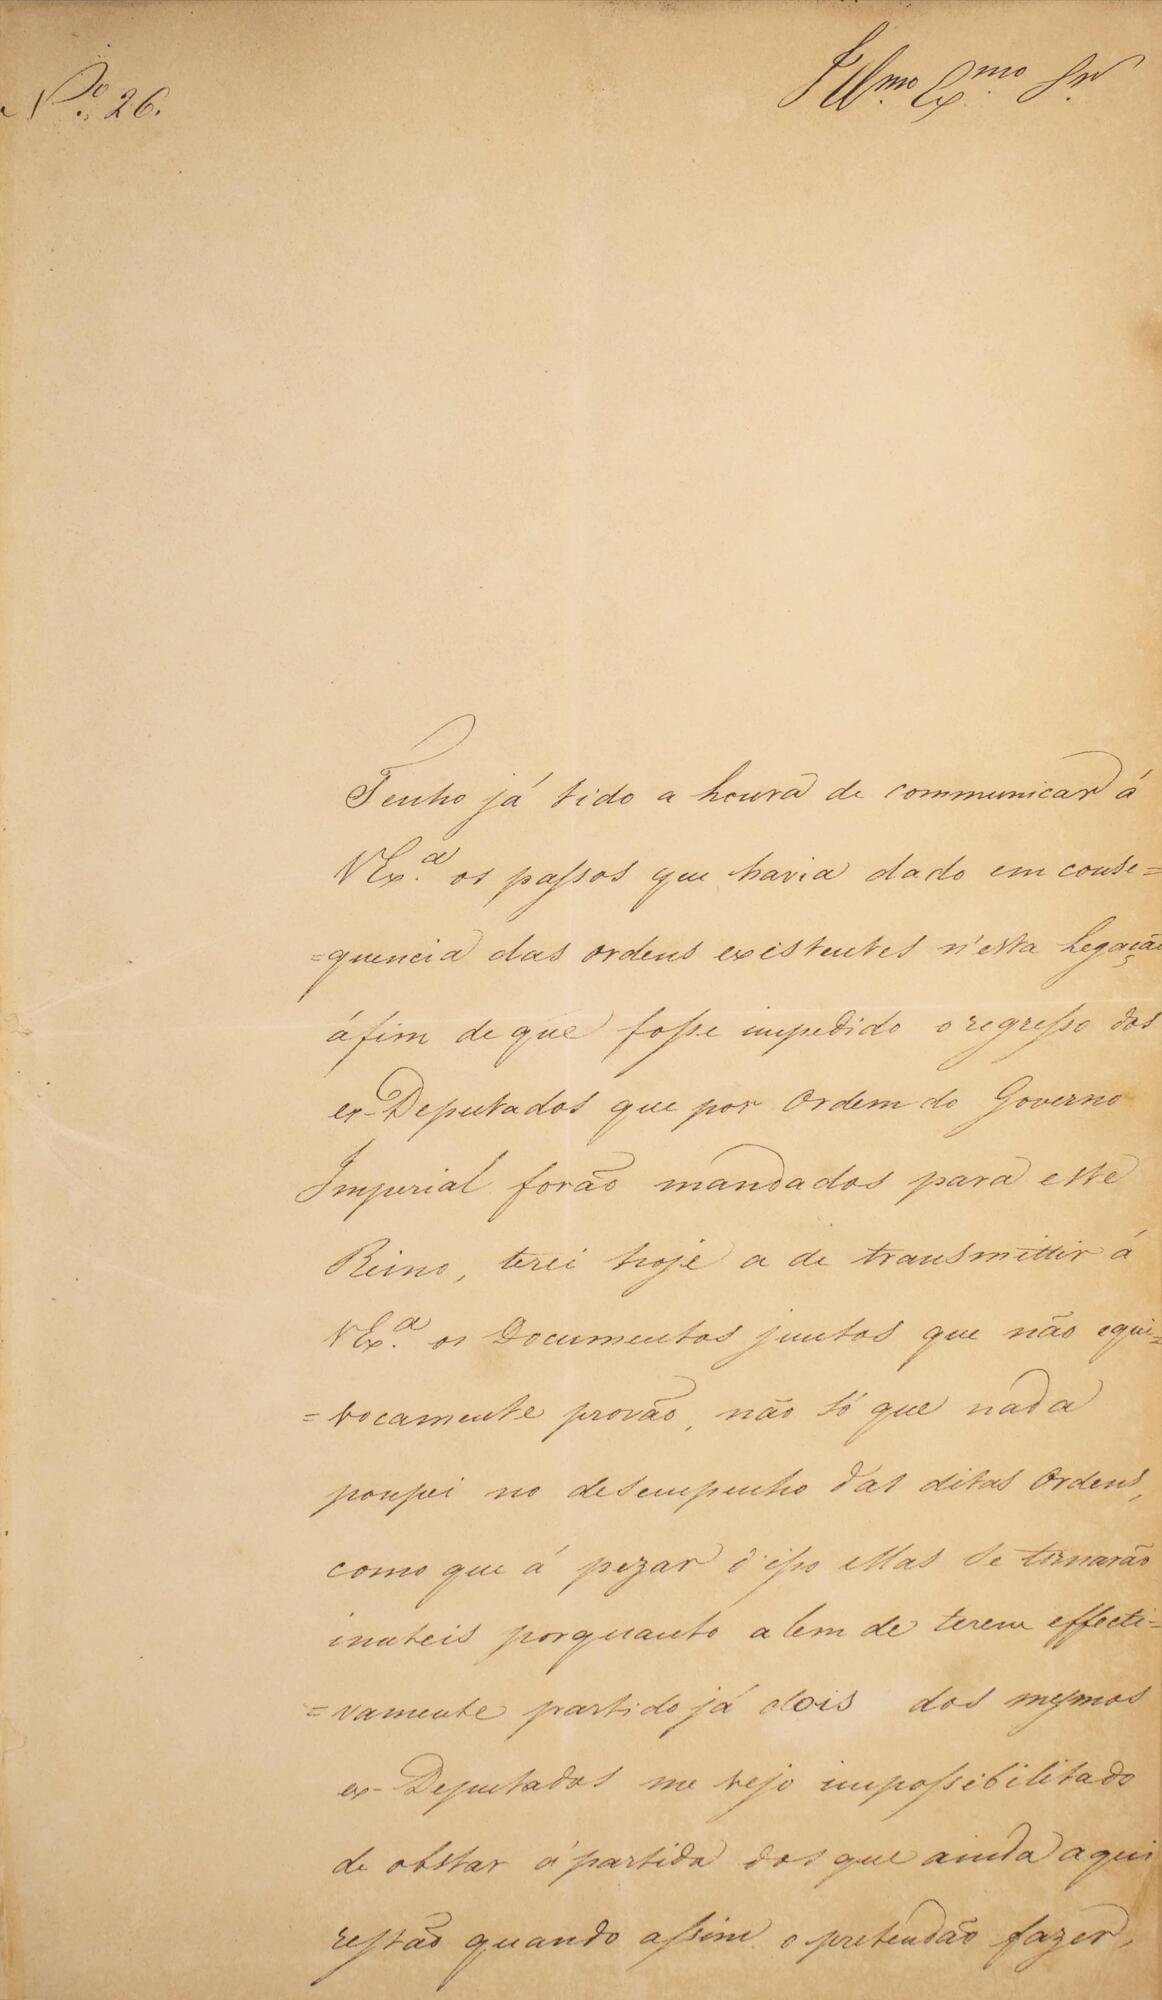 N.º 26.
Illmo Exmo Snr
Tenho já tido a honra de communicar á
VEx.a os passos que havia dado em conse=
=quencia das ordens existentes n'esta Legação
áfim de que fosse impedido o regresso dos
ex-Deputados que por Ordem do Governo
Imperial forão mandados para este
Reino, terei hoje a de transmittir á
VEx.a os Documentos juntos que não equi=
=vocamente provão, não só que nada
poupei no desempenho das ditas Ordens,
como que á pezar d'isso ellas se tornarão
inuteis porquanto alem de terem effecti=
=vamente partido já dois dos mesmos
ex-Deputados me vejo impossibilitado
de obstar á partida dos que ainda aqui
restão quando assim o pretendão fazer,